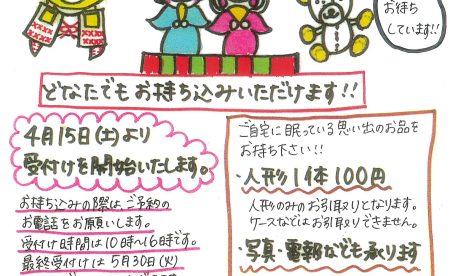 お待ち
しています!!
どなたでもお持ち込みいただけます!!
4月15日(土)より
受付けを開始いたします。
お持ち込みの際は、ご予約の
お電話をお願いします。
受付け時間は10時〜16時です。
最終受付けは5月30日(火)
ご自宅に眠っている思い出のお品を
お持ち下さい!!
・人形1体100円
人形のみのお引取りとなります。
ケースなどはお引取りできません。
・写真・電報なども承ります